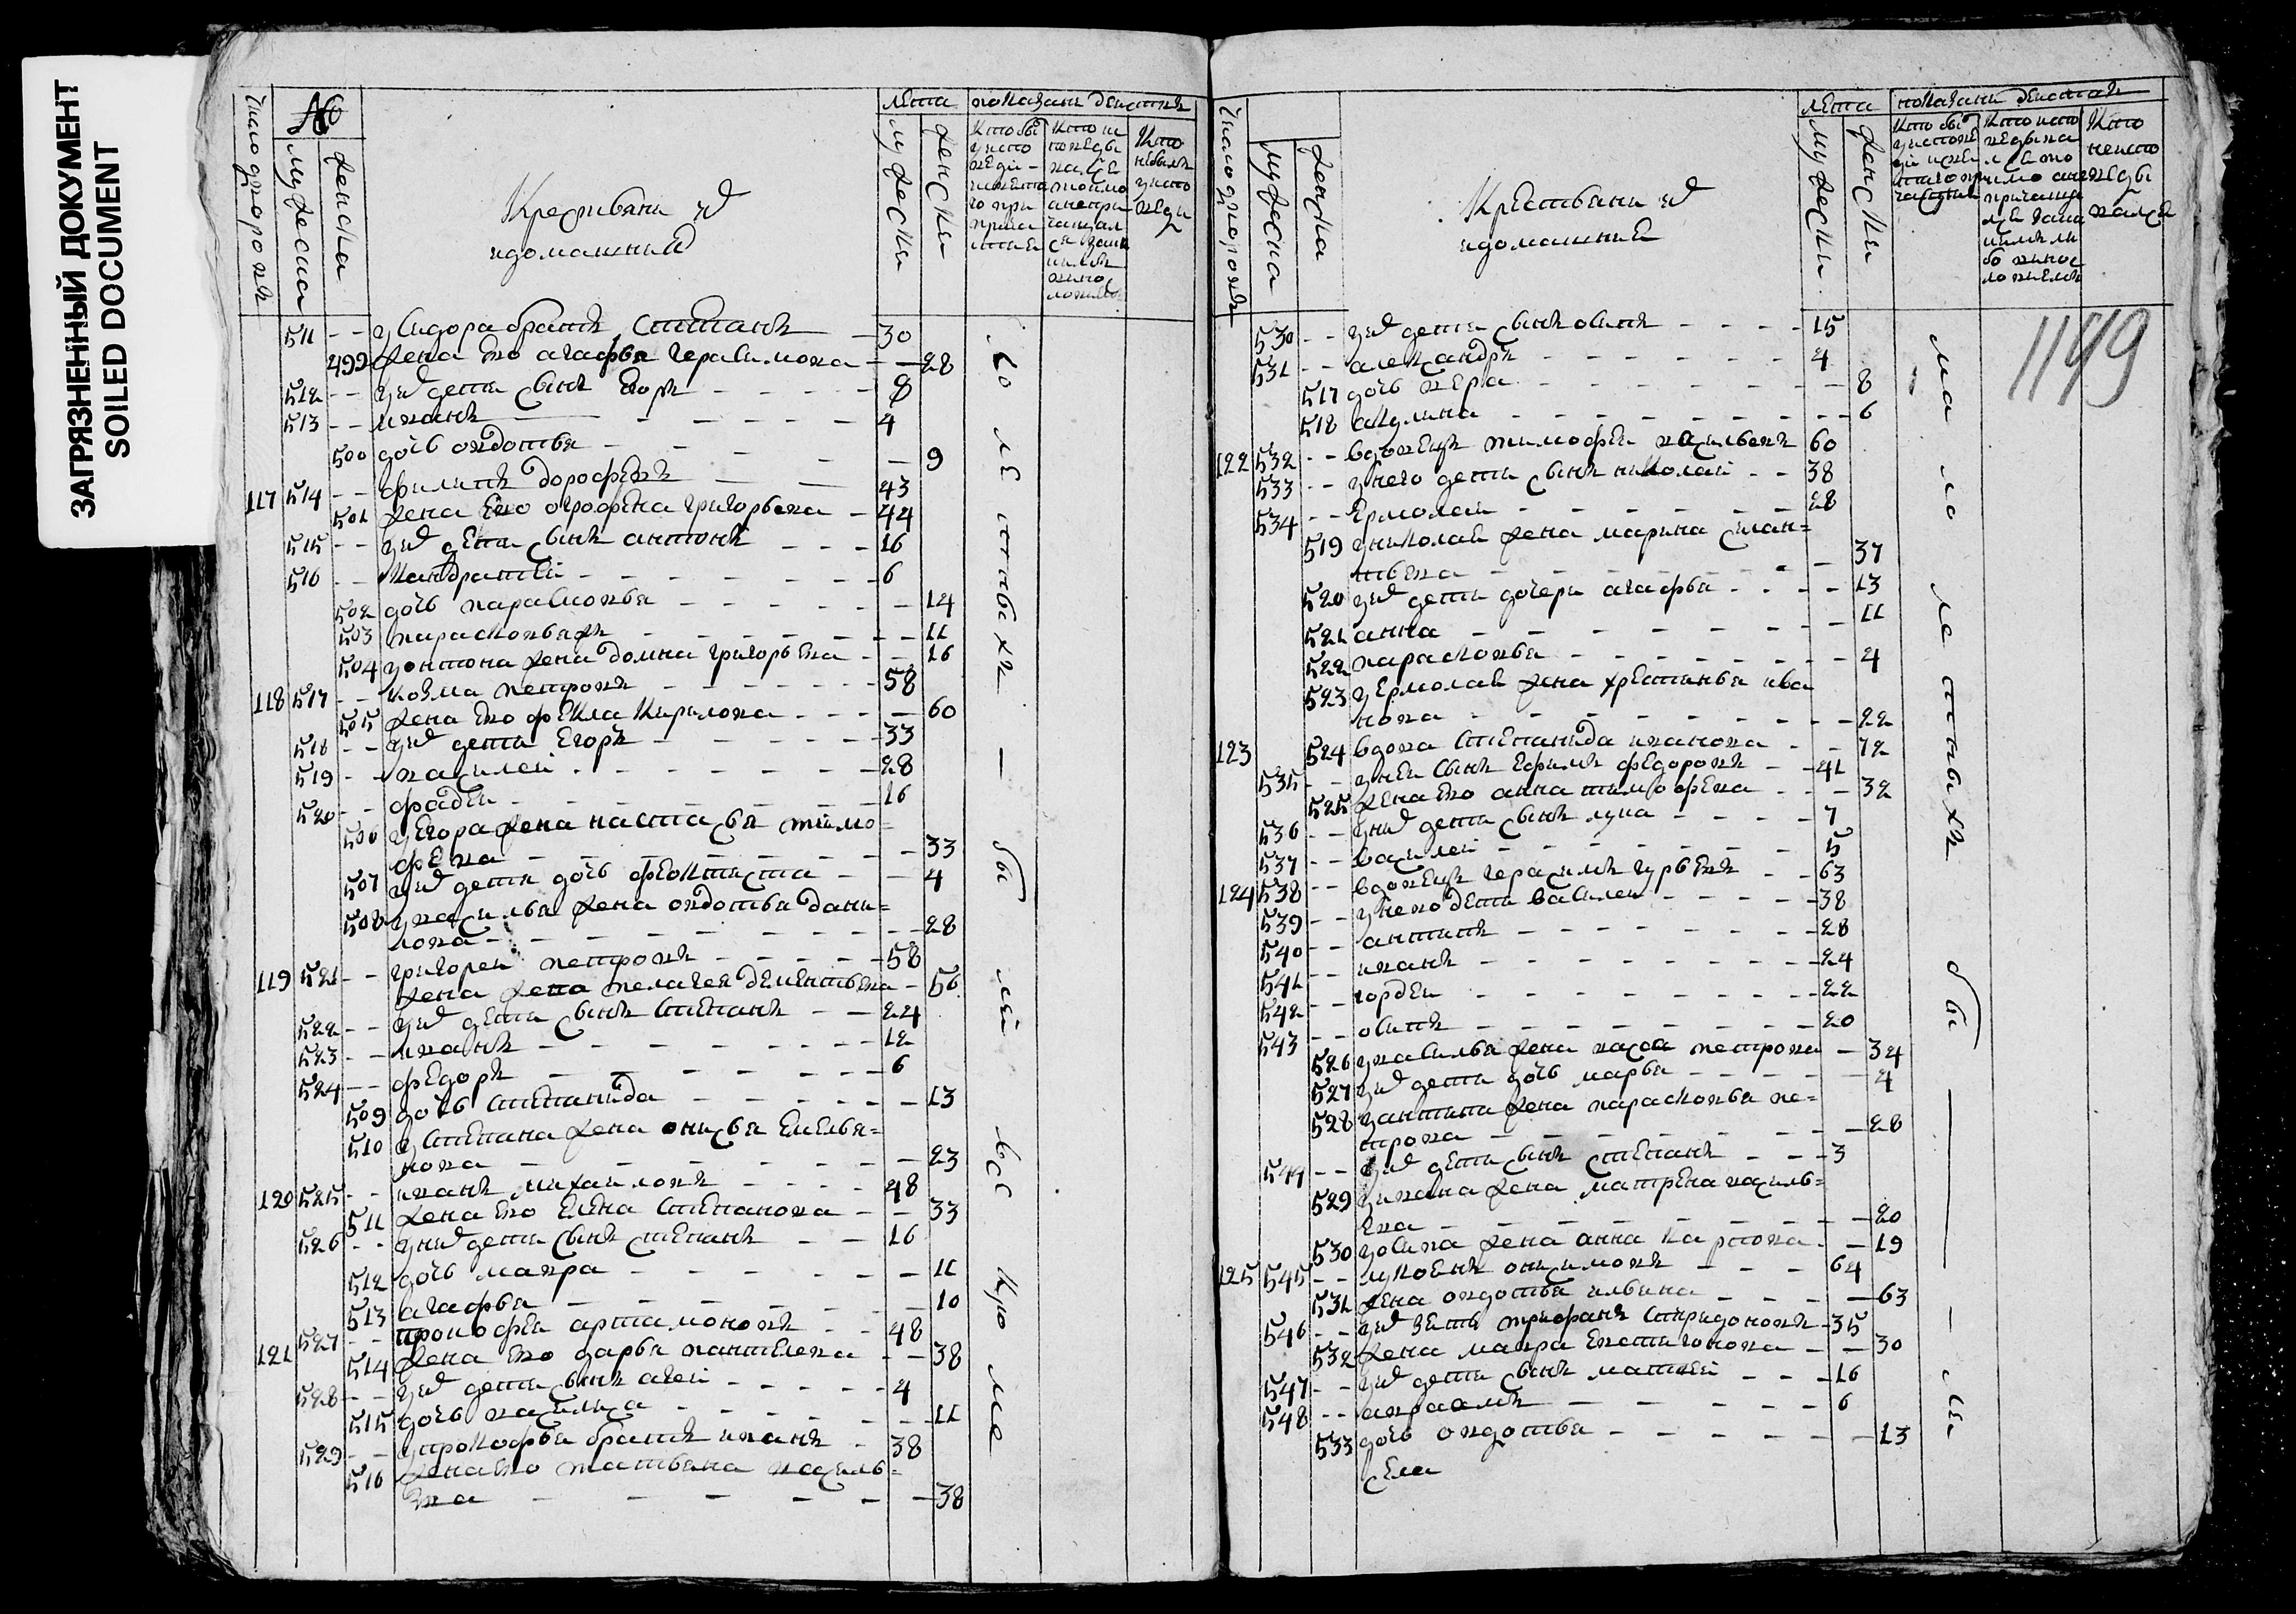 ЗАГРЯЗНЕННЫЙ ДОКУМЕНТ
SOILED DOCUMENT
№
лета
мужеска
женска
Крестьяне и
идомашния
511 – – у Сидора братъ Степанъ – 30
499 жена ево агафья герасимова – – 28
512 – – уних дети сынъ Егоръ – – – – 8
513 – – иванъ – – – – – 4
500 дочь авдотья – – – – – 9
117 514 – – филипъ дорофеевъ – – 43
501 жена ево огрофена григорьева – 44
515 – – уних дети сынъ антонъ – – – 16
516 – – Кандратей – – – – – – 6
502 дочь парасковья – – – – – – 14
503 парасковья жъ – – – – – – 11
504 уонтона жена домна григорьева – – 16
118 517 – – козма петровъ – – – – – – 58
505 жена ево фекла Кирилова – – – – 60
518 – – уних дети Егоръ – – – – – 33
519 – – василей – – – – – – 28
520 – – фадеи – – – – – – – 16
506 уегора жена настасья тимо=
феева – – – – – – – – 33
507 уних дети дочь феоктиста – – – 4
508 увасилья жена овдотья дани=
лова – – – – – – – – 28
119 521 – – григореи петровъ – – – – – 58
жена пелагея дементьева – 56
522 – – уних дети сынъ Степанъ – – 24
523 – – иванъ – – – – – – – 12
524 – – федоръ – – – – – – – 6
509 дочь Степанида – – – – – – 13
510 уСтепана жена онисья Емелья=
нова – – – – – – – – 23
120 525 – – иванъ михаиловъ – – – – 48
511 жена ево Елена Степанова – – 33
526 – – уних дети сынъ степанъ – – 16
512 дочь мавра – – – – – – – 11
513 агафья – – – – – – – 10
121 527 – – прокофеи артамоновъ – – 48
514 жена ево дарья пантелеева – – 38
528 – – уних дети сынъ агей – – – – – 4
515 дочь василиса – – – – – – – 11
529 – – упрокофья братъ иванъ – 38
516 жена ево татьяна василь=
ева – – – – – – – 38
лета
мужеска
женска
Крестьяне и
идомашние
1149
530 – – уних дети сынъ осипъ – – – – 15
531 – – александръ – – – – – – – 4
517 дочь вера – – – – – – – – 8
518 акулина – – – – – – – – – 6
122 532 – – вдовецъ тимофеи васильевъ 60
533 – – унего дети сынъ николаи – – 38
534 – – Ермолаи – – – – – – 28
519 униколая жена марина силан=
тьева – – – – – – – – 37
520 уних дети дочери агафья – – – – 13
521 анна – – – – – – – – 11
522 парасковья – – – – – – – – 4
523 уермолая жена хрестинья ива
нова – – – – – – – – – 22
123 524 вдова Степанида иванова – – 72
535 – – унеи сынъ Ефимъ федоровъ – – 41
525 жена ево анна тимофеева – – – 32
536 – – уних дети сынъ лука – – – – 7
537 – – василеи – – – – – – – 5
124 538 – – вдовецъ герасимъ гурьевъ – – 63
539 – – унево дети василеи – – – – – 38
540 – – антипъ – – – – – – – 28
541 – – иванъ – – – – – – – – 24
542 – – гордеи – – – – – – – 22
543 – – осипъ – – – – – – – – 20
526 увасилья жена васса петрова – 34
527 уних дети дочь марья – – – – – 4
528 уантипа жена парасковья пе=
трова – – – – – – – – 28
544 – – уних дети сынъ степанъ – – – 3
529 уивана жена матрена василь=
ева – – – – – – – – – 20
530 уосипа жена анна карпова – – 19
125 545 – – лукоянъ онисимовъ – – – 64
531 жена овдотья ильина – – – – 63
546 – – уних зять трифанъ Спиридоновъ – 35
532 жена мавра Евстигнеева – – 30
547 – – уних дети сынъ матвей – – – 16
548 – – авраамъ – – – – – – 6
533 дочь овдотья – – – – – – – 13
села